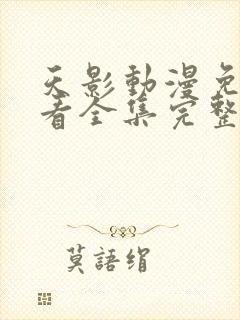 天影動漫免
看全集完整
莫語绢